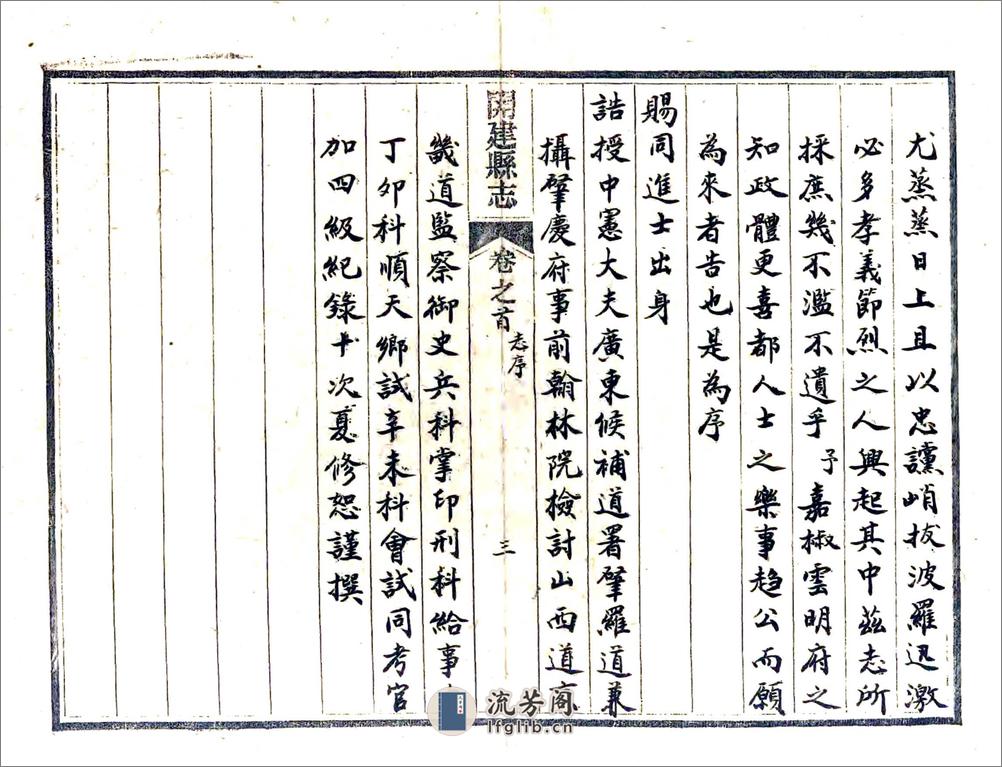 尤蒸蒸日上且以忠讜峭拔波羅迅激
必多孝義節烈之人興起其中茲志所
採庶幾不濫不遺乎予嘉椒雲明府之
知政體更喜都人士之樂事趨公而願
為來者告也是為序
賜同進士出身
誥授中憲大夫廣東候補道署肇羅道兼
攝肇慶府事前翰林院檢討山西道京
開建縣志 卷之首 志序 三
畿道監察御史兵科掌印刑科給事
丁卯科順天鄉試辛未科會試同考官
加四級紀錄十次夏修恕謹撰
流芳阁
lfglib.cn